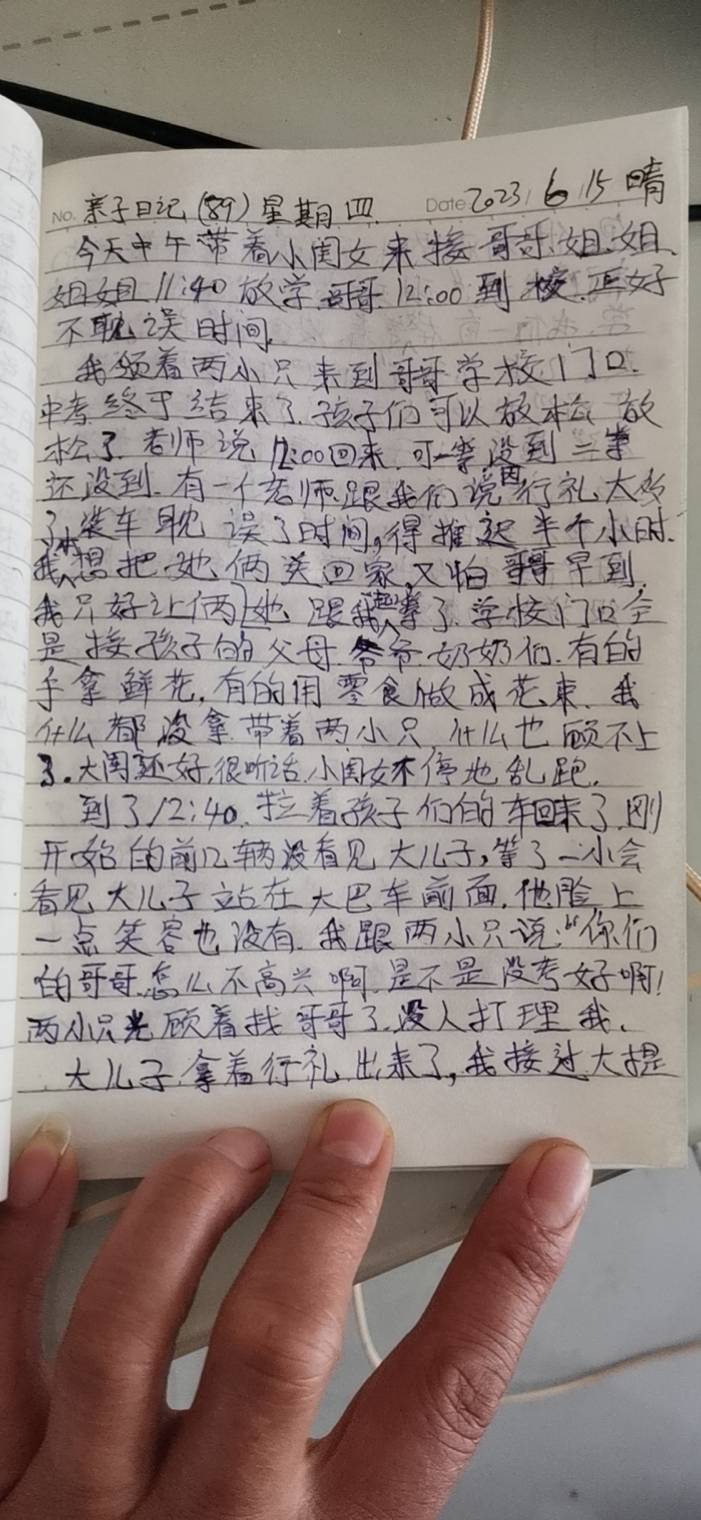 No. 亲子日记(89)星期四 Date 2023/6/15 晴
今天中午带着小闺女来接哥哥、姐姐、
姐姐11:40放学,哥哥12:00到校,正好
不耽误时间。
我领着两小只来到哥哥学校门口.
中考终于结束了.孩子们可以放松放
松了.老师说12:00回来.可一等没到二等
还没到.有一个老师跟我们说因行礼太多
了装车耽误了时间,得推迟半个小时.
我本想把她俩送回家,又怕哥哥早到,
我只好让俩她跟我一起等了.学校门口全
是接孩子的父母.爷爷奶奶们.有的
手拿鲜花,有的用零食做成花束.我
什么都没拿带着两小只什么也顾不上
了.大闺还好,很听话.小闺女不停地乱跑.
到了12:40.拉着孩子们的车回来了.刚
开始的前几辆没看见大儿子,等了一小会
看见大儿子站在大巴车前面.他脸上
一点笑容也没有.我跟两小只说:“你们
的哥哥怎么不高兴啊.是不是没考好啊!
两小只光顾着找哥哥了.没人打理我.
大儿子拿着行礼出来了,我接过大提